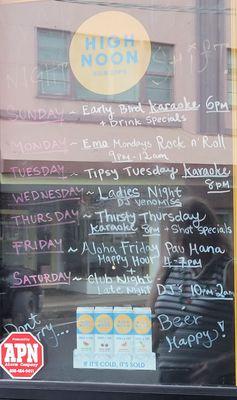 HIGH
NOON
NIGHT Shift
SUNDAY ~ Early Bird Karaoke 6pm
+ Drink Specials
Mondays ~ Emo Mondays Rock n' Roll
9pm-12am
TUESDAY ~ Tipsy Tuesday Karaoke
8pm
WEDNESDAY ~ Ladies Night
DJ Venomiss
THURSDAY ~ Thirsty Thursday
Karaoke + Shot Specials
FRIDAY ~ Aloha Friday Pau Hana
Happy Hour 4-7pm
SATURDAY ~ Club Night
Late Night DJ's 10pm-2am
Don't Worry... Beer Happy!
IF IT'S COLD, IT'S SOLD
Protected By
APN
Alarm Company